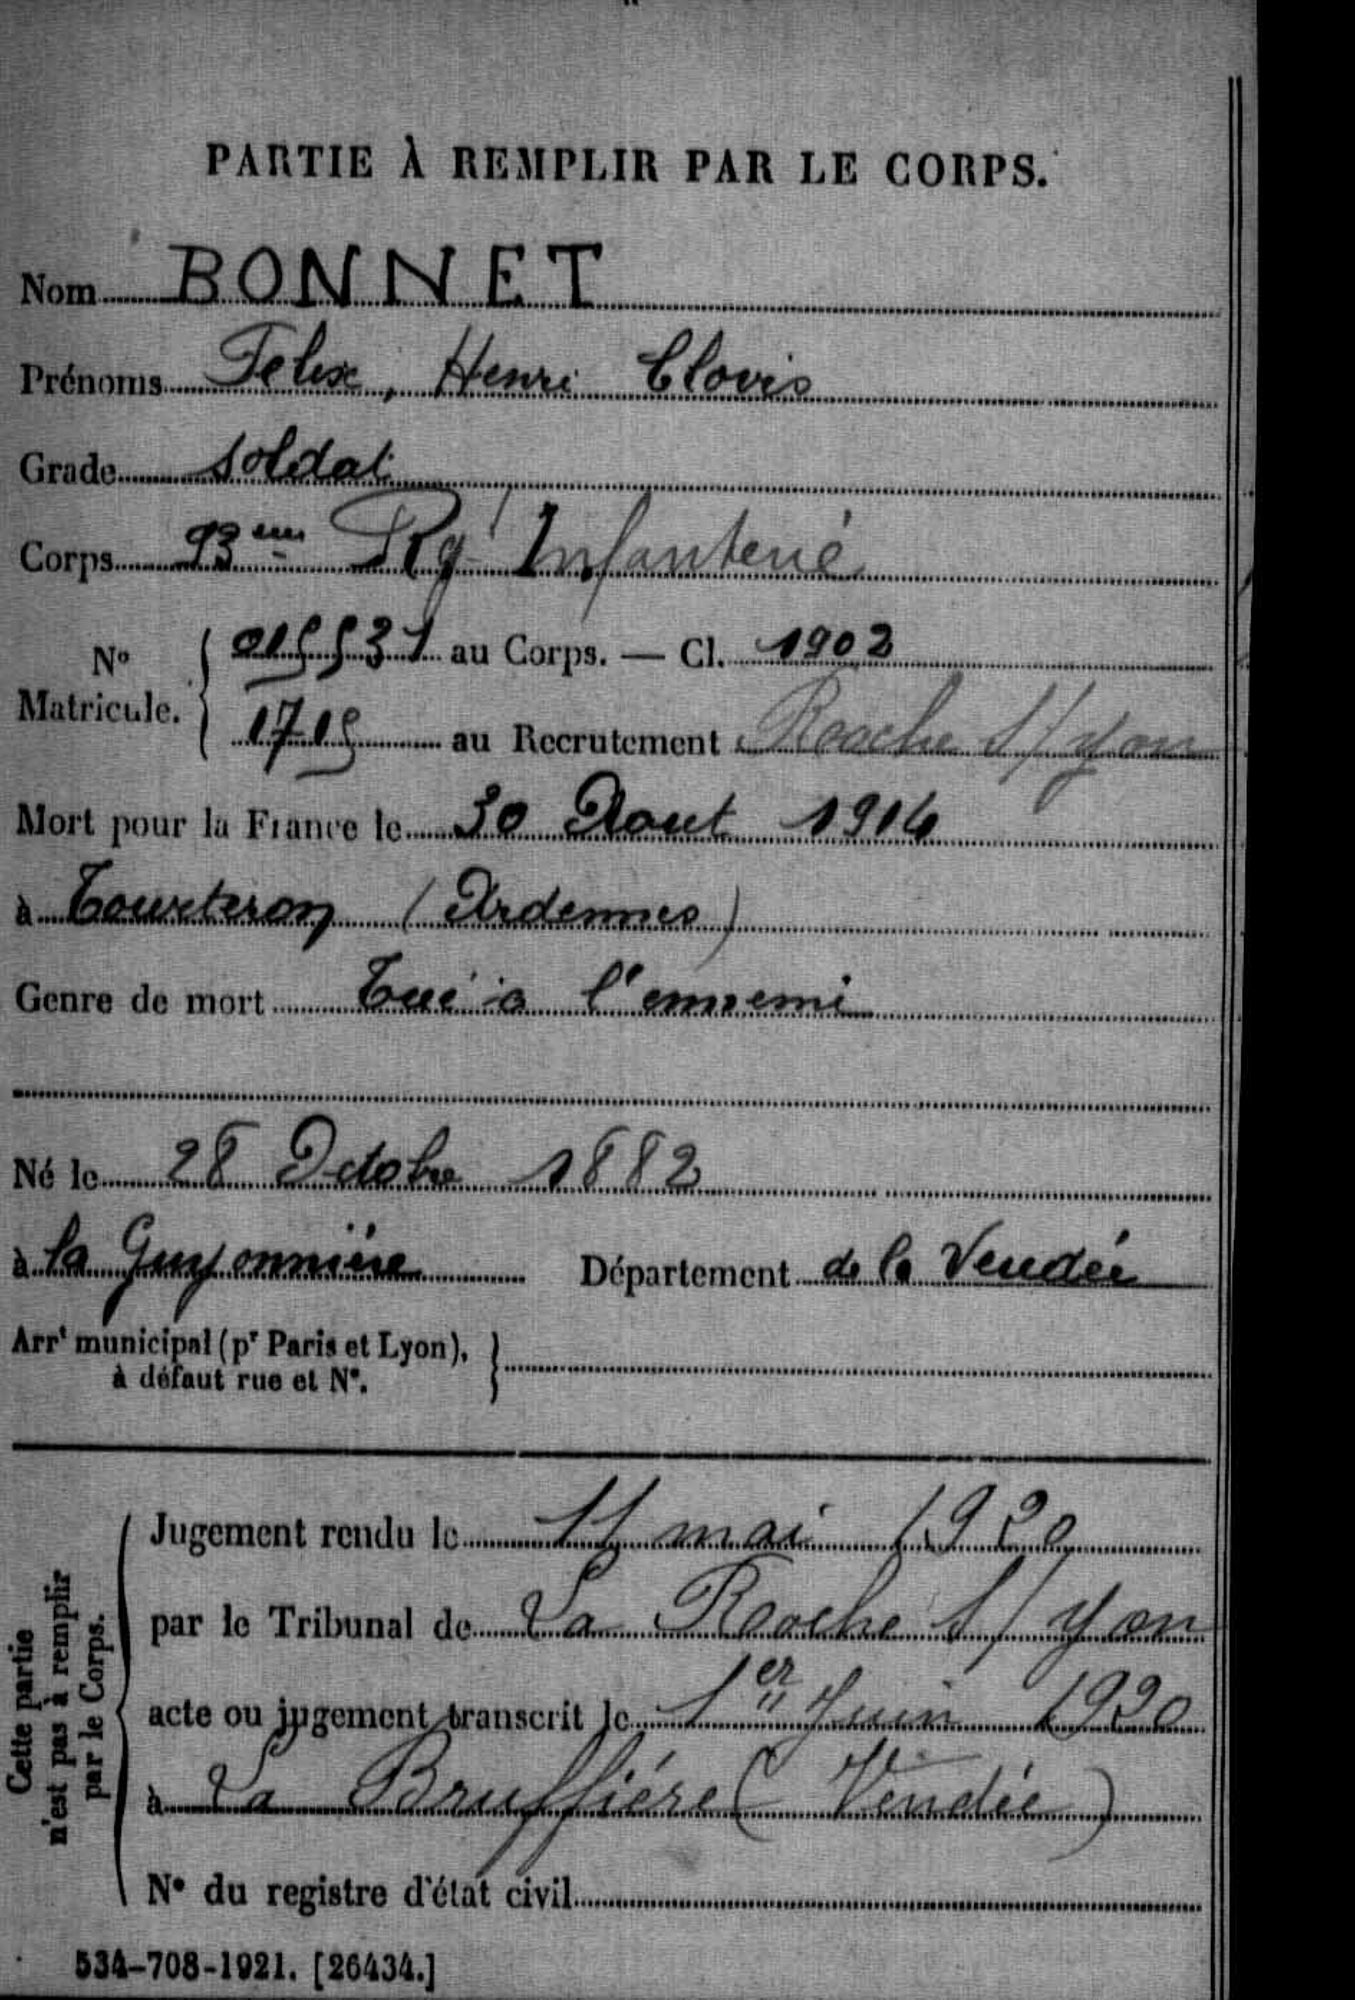 PARTIE À REMPLIR PAR LE CORPS.
Nom BONNET
Prénoms Felix, Henri Clovis
Grade Soldat
Corps 93ème Rgt Infanterie
N° Matricule. { 015531 au Corps. — Cl. 1902
1715 au Recrutement Roche S/ yon
Mort pour la France le 30 Aout 1914
à Tourteron (Ardennes)
Genre de mort Tué à l'ennemi
Né le 28 Octobre 1882
à la Guyonnière Département de la Vendée
Arrt municipal (pr Paris et Lyon), }
à défaut rue et N°.
Cette partie n'est pas à remplir par le Corps.
Jugement rendu le 11 mai 1920
par le Tribunal de La Roche S/ yon
acte ou jugement transcrit le 1er Juin 1920
à La Bruffière (Vendée)
N° du registre d'état civil
534-708-1921. [26434.]